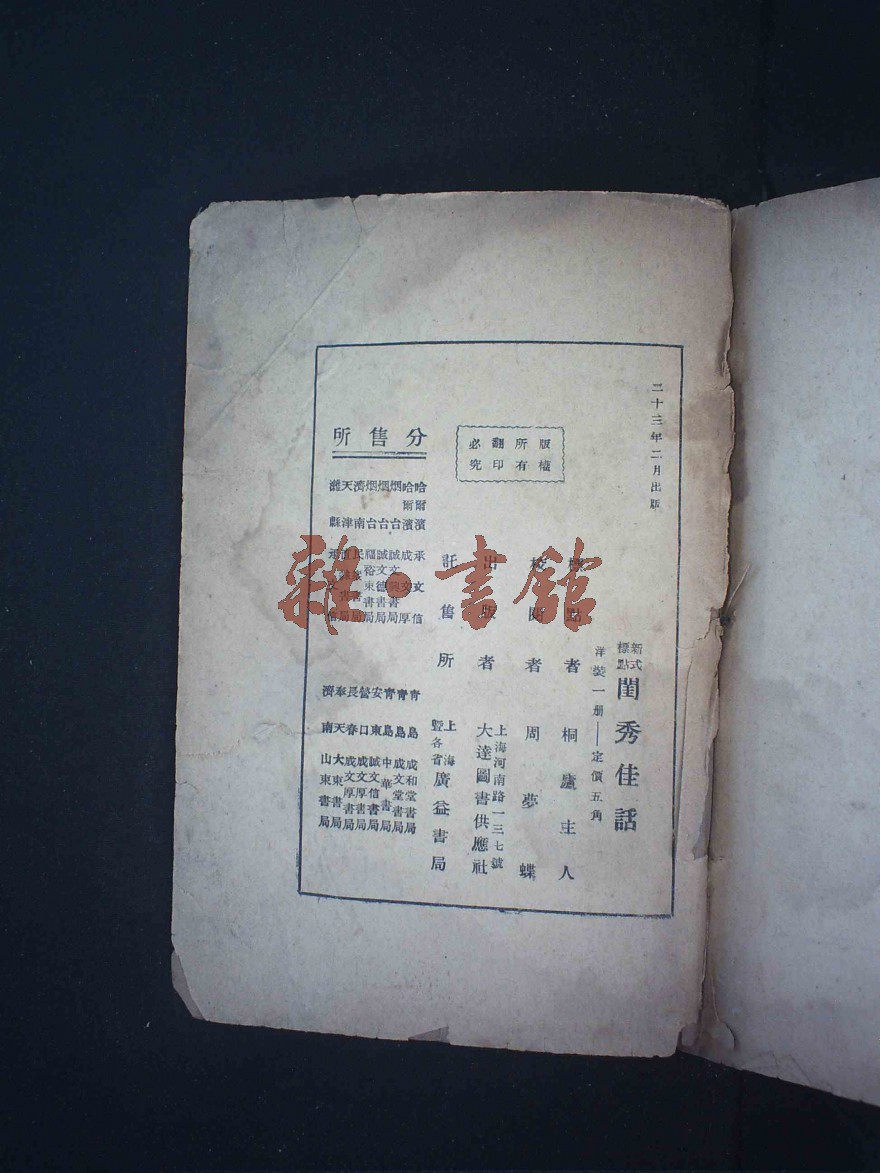 二十三年二月出版
新式
標點
閨秀佳話
洋裝一册——定價五角
標點者 桐廬主人
校閱者 周夢蝶
出版者
上海河南路一三七號
大達圖書供應社
託售所
上海
暨各省
廣益書局
版權
所有
翻印
必究
分售所
哈爾濱
哈爾濱
烟台
烟台
烟台
濟南
天津
濰縣
青島 成和堂書局
青島 成文堂書局
青島 中華書局
安東 誠文信書局
營口 成文厚書局
長春 成文厚書局
奉天 大東書局
濟南 山東書局
雜·書館